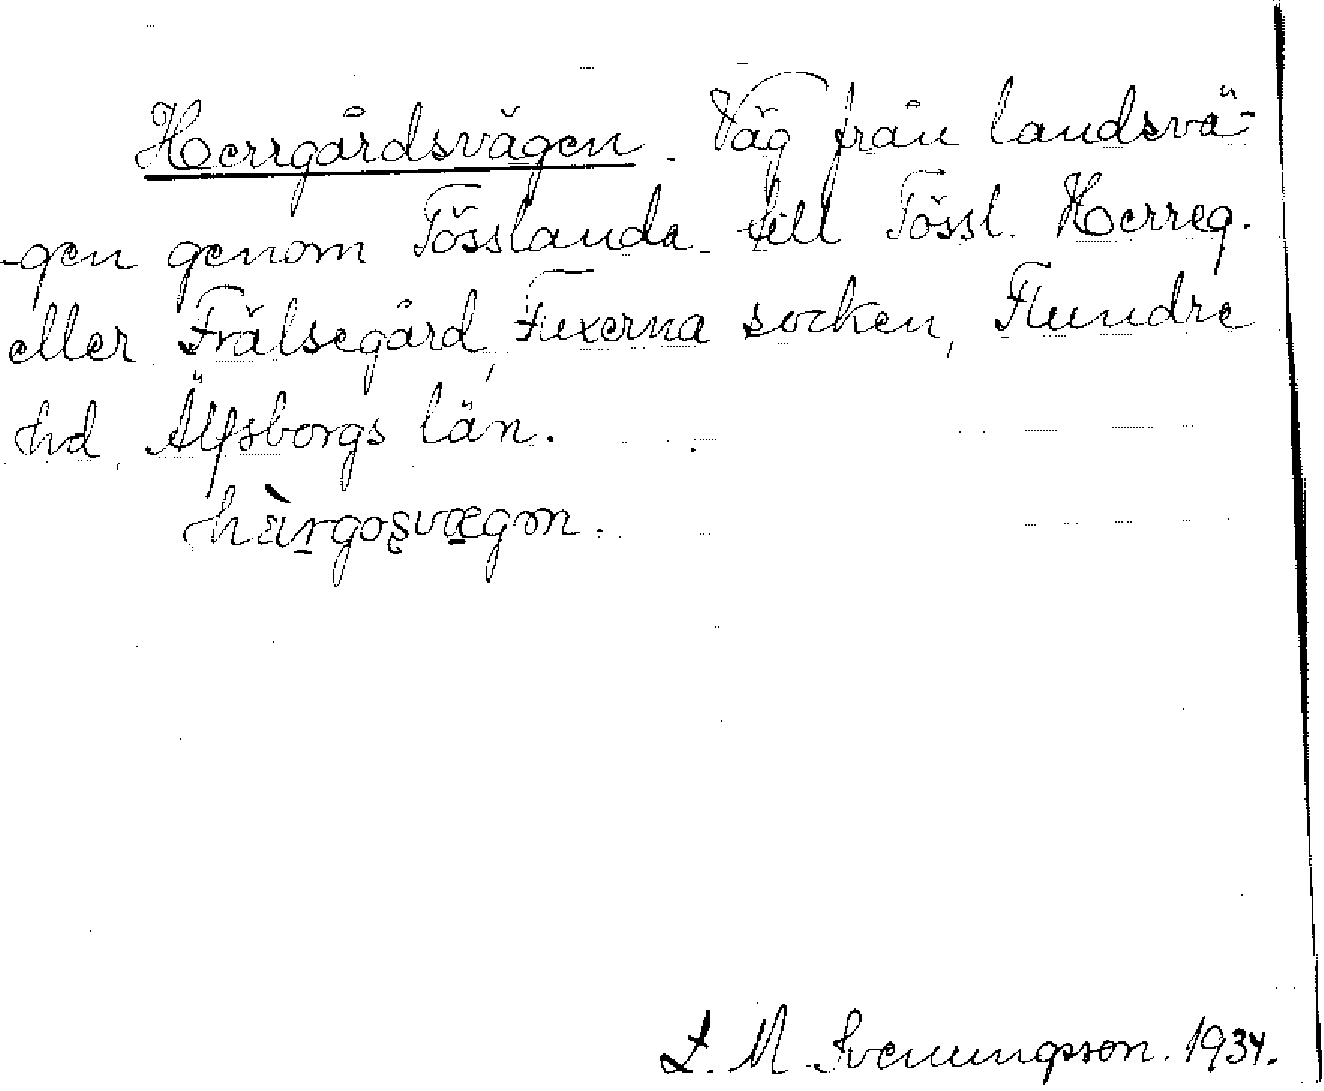 Herrgårdsvägen. Väg från landsvä-
-gen genom Tösslanda till Tössl. Herreg.
eller Frälsegård, Fuxerna socken, Flundre
hd. Älfsborgs län.
L. M. Svenungsson. 1934.